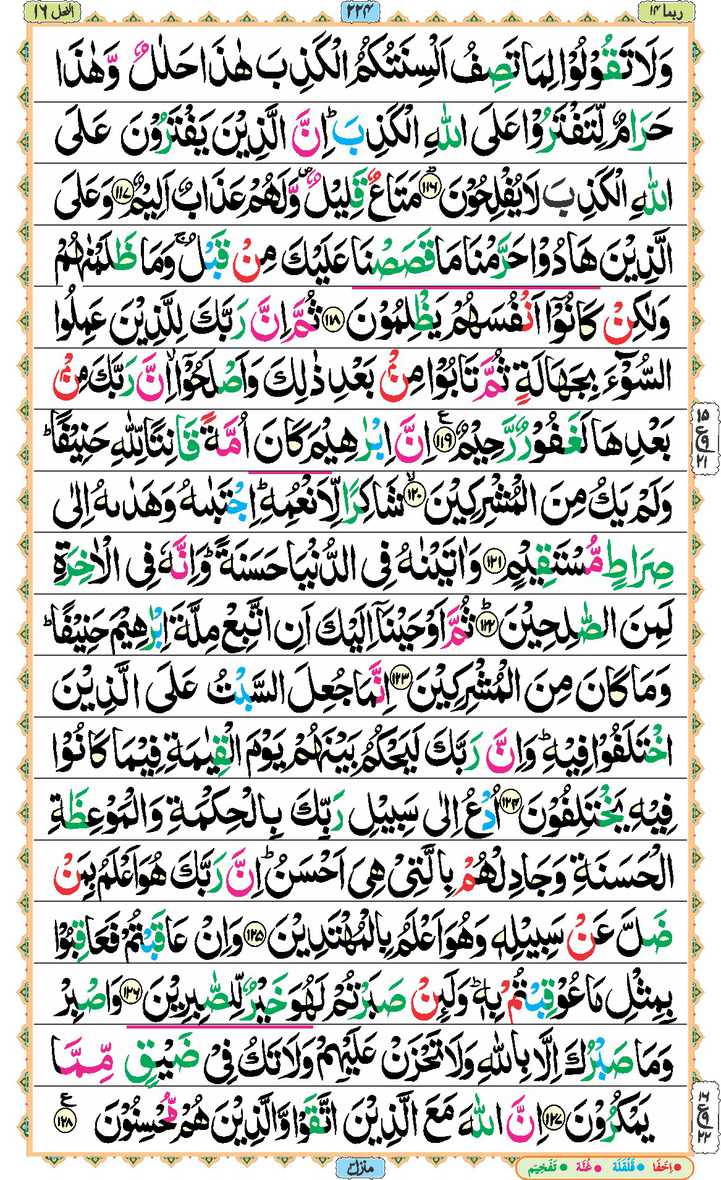 ربما ۱۴
۲۲۴
النحل ۱۶
وَلَا تَقُوْلُوْا لِمَا تَصِفُ اَلْسِنَتُكُمُ الْكَذِبَ هٰذَا حَلٰلٌ وَّهٰذَا
حَرَامٌ لِّتَفْتَرُوْا عَلَى اللّٰهِ الْكَذِبَ ؕ اِنَّ الَّذِيْنَ يَفْتَرُوْنَ عَلَى
اللّٰهِ الْكَذِبَ لَا يُفْلِحُوْنَ ؕ﴿۱۱۶﴾ مَتَاعٌ قَلِيْلٌ ۪ وَّلَهُمْ عَذَابٌ اَلِيْمٌ ﴿۱۱۷﴾ وَعَلَى
الَّذِيْنَ هَادُوْا حَرَّمْنَا مَا قَصَصْنَا عَلَيْكَ مِنْ قَبْلُ ۚ وَمَا ظَلَمْنٰهُمْ
وَلٰكِنْ كَانُوْۤا اَنْفُسَهُمْ يَظْلِمُوْنَ ﴿۱۱۸﴾ ثُمَّ اِنَّ رَبَّكَ لِلَّذِيْنَ عَمِلُوا
السُّوْٓءَ بِجَهَالَةٍ ثُمَّ تَابُوْا مِنْۢ بَعْدِ ذٰلِكَ وَاَصْلَحُوْۤا ۙ اِنَّ رَبَّكَ مِنْۢ
بَعْدِهَا لَغَفُوْرٌ رَّحِيْمٌ ﴿۱۱۹﴾ ع اِنَّ اِبْرٰهِيْمَ كَانَ اُمَّةً قَانِتًا لِّلّٰهِ حَنِيْفًا ؕ
وَلَمْ يَكُ مِنَ الْمُشْرِكِيْنَ ۙ﴿۱۲۰﴾ شَاكِرًا لِّاَنْعُمِهٖ ؕ اِجْتَبٰىهُ وَهَدٰىهُ اِلٰى
صِرَاطٍ مُّسْتَقِيْمٍ ﴿۱۲۱﴾ وَاٰتَيْنٰهُ فِى الدُّنْيَا حَسَنَةً ؕ وَاِنَّهٗ فِى الْاٰخِرَةِ
لَمِنَ الصّٰلِحِيْنَ ؕ﴿۱۲۲﴾ ثُمَّ اَوْحَيْنَاۤ اِلَيْكَ اَنِ اتَّبِعْ مِلَّةَ اِبْرٰهِيْمَ حَنِيْفًا ؕ
وَمَا كَانَ مِنَ الْمُشْرِكِيْنَ ﴿۱۲۳﴾ اِنَّمَا جُعِلَ السَّبْتُ عَلَى الَّذِيْنَ
اخْتَلَفُوْا فِيْهِ ؕ وَاِنَّ رَبَّكَ لَيَحْكُمُ بَيْنَهُمْ يَوْمَ الْقِيٰمَةِ فِيْمَا كَانُوْا
فِيْهِ يَخْتَلِفُوْنَ ﴿۱۲۴﴾ اُدْعُ اِلٰى سَبِيْلِ رَبِّكَ بِالْحِكْمَةِ وَالْمَوْعِظَةِ
الْحَسَنَةِ وَجَادِلْهُمْ بِالَّتِىْ هِىَ اَحْسَنُ ؕ اِنَّ رَبَّكَ هُوَ اَعْلَمُ بِمَنْ
ضَلَّ عَنْ سَبِيْلِهٖ وَهُوَ اَعْلَمُ بِالْمُهْتَدِيْنَ ﴿۱۲۵﴾ وَاِنْ عَاقَبْتُمْ فَعَاقِبُوْا
بِمِثْلِ مَا عُوْقِبْتُمْ بِهٖ ؕ وَلَئِنْ صَبَرْتُمْ لَهُوَ خَيْرٌ لِّلصّٰبِرِيْنَ ﴿۱۲۶﴾ وَاصْبِرْ
وَمَا صَبْرُكَ اِلَّا بِاللّٰهِ وَلَا تَحْزَنْ عَلَيْهِمْ وَلَا تَكُ فِىْ ضَيْقٍ مِّمَّا
يَمْكُرُوْنَ ﴿۱۲۷﴾ اِنَّ اللّٰهَ مَعَ الَّذِيْنَ اتَّقَوْا وَّالَّذِيْنَ هُمْ مُّحْسِنُوْنَ ﴿۱۲۸﴾ ع
منزل ۳
اخفا قلقلة غنة تفخيم